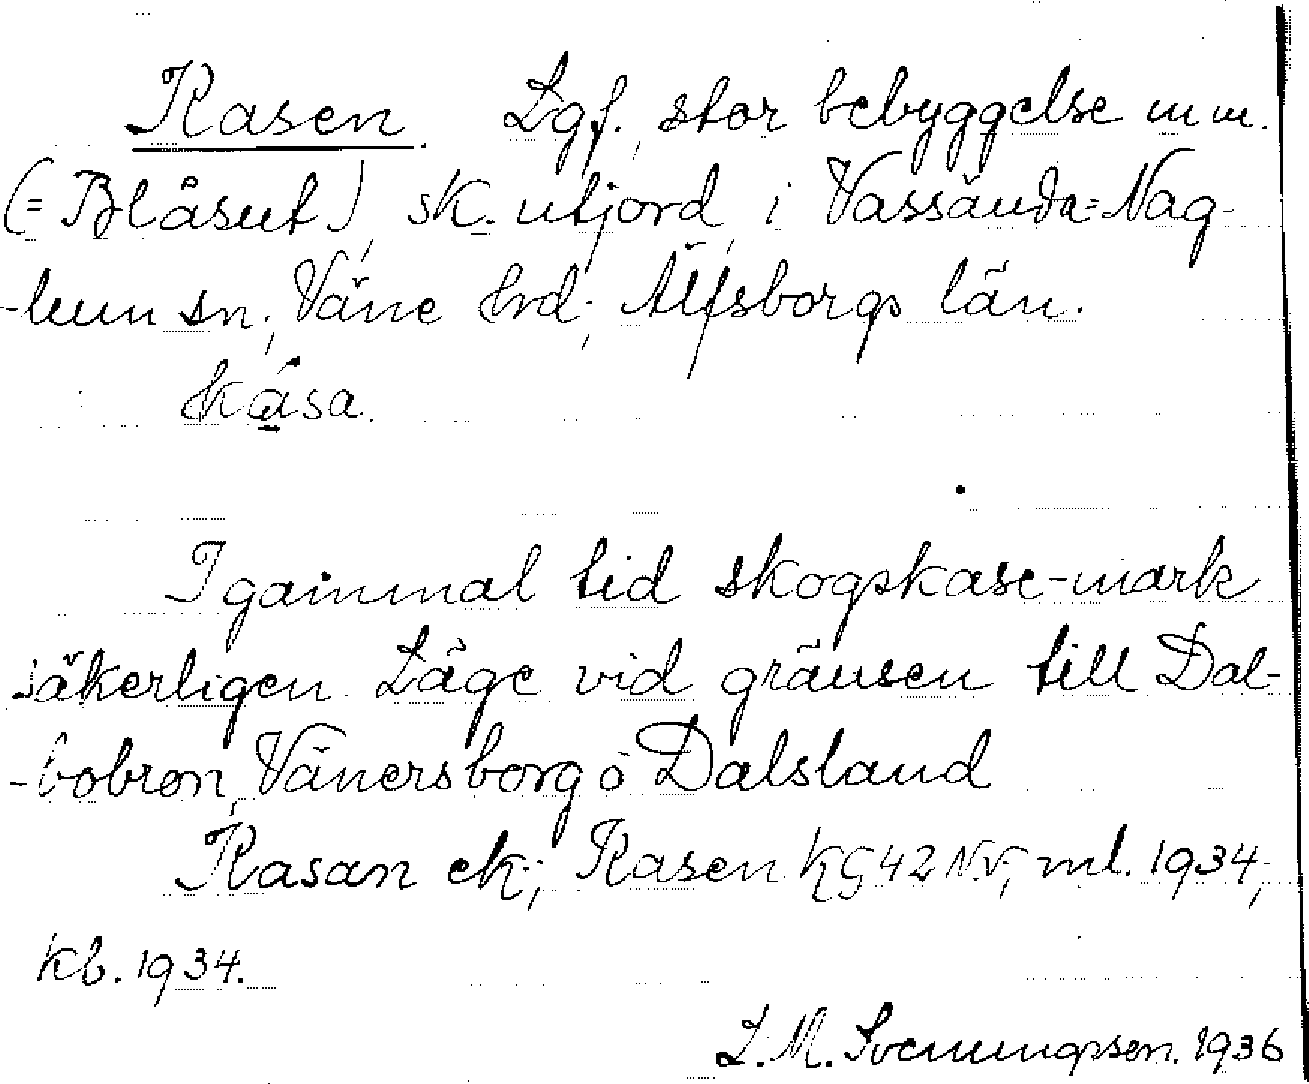 Kasen. Lgf. stor bebyggelse m m.
(= Blåsut), sk. utjord, i Vassända=Nag-
-lum sn, Väne hrd; Älfsborgs län.
kása.
I gammal tid skogskase-mark
säkerligen. Läge vid gränsen till Dal-
-bobron, Vänersborg o Dalsland
Kasan ek; Kasen KG42 NV, ml. 1934,
kb. 1934.
L. M. Svenungsson. 1936